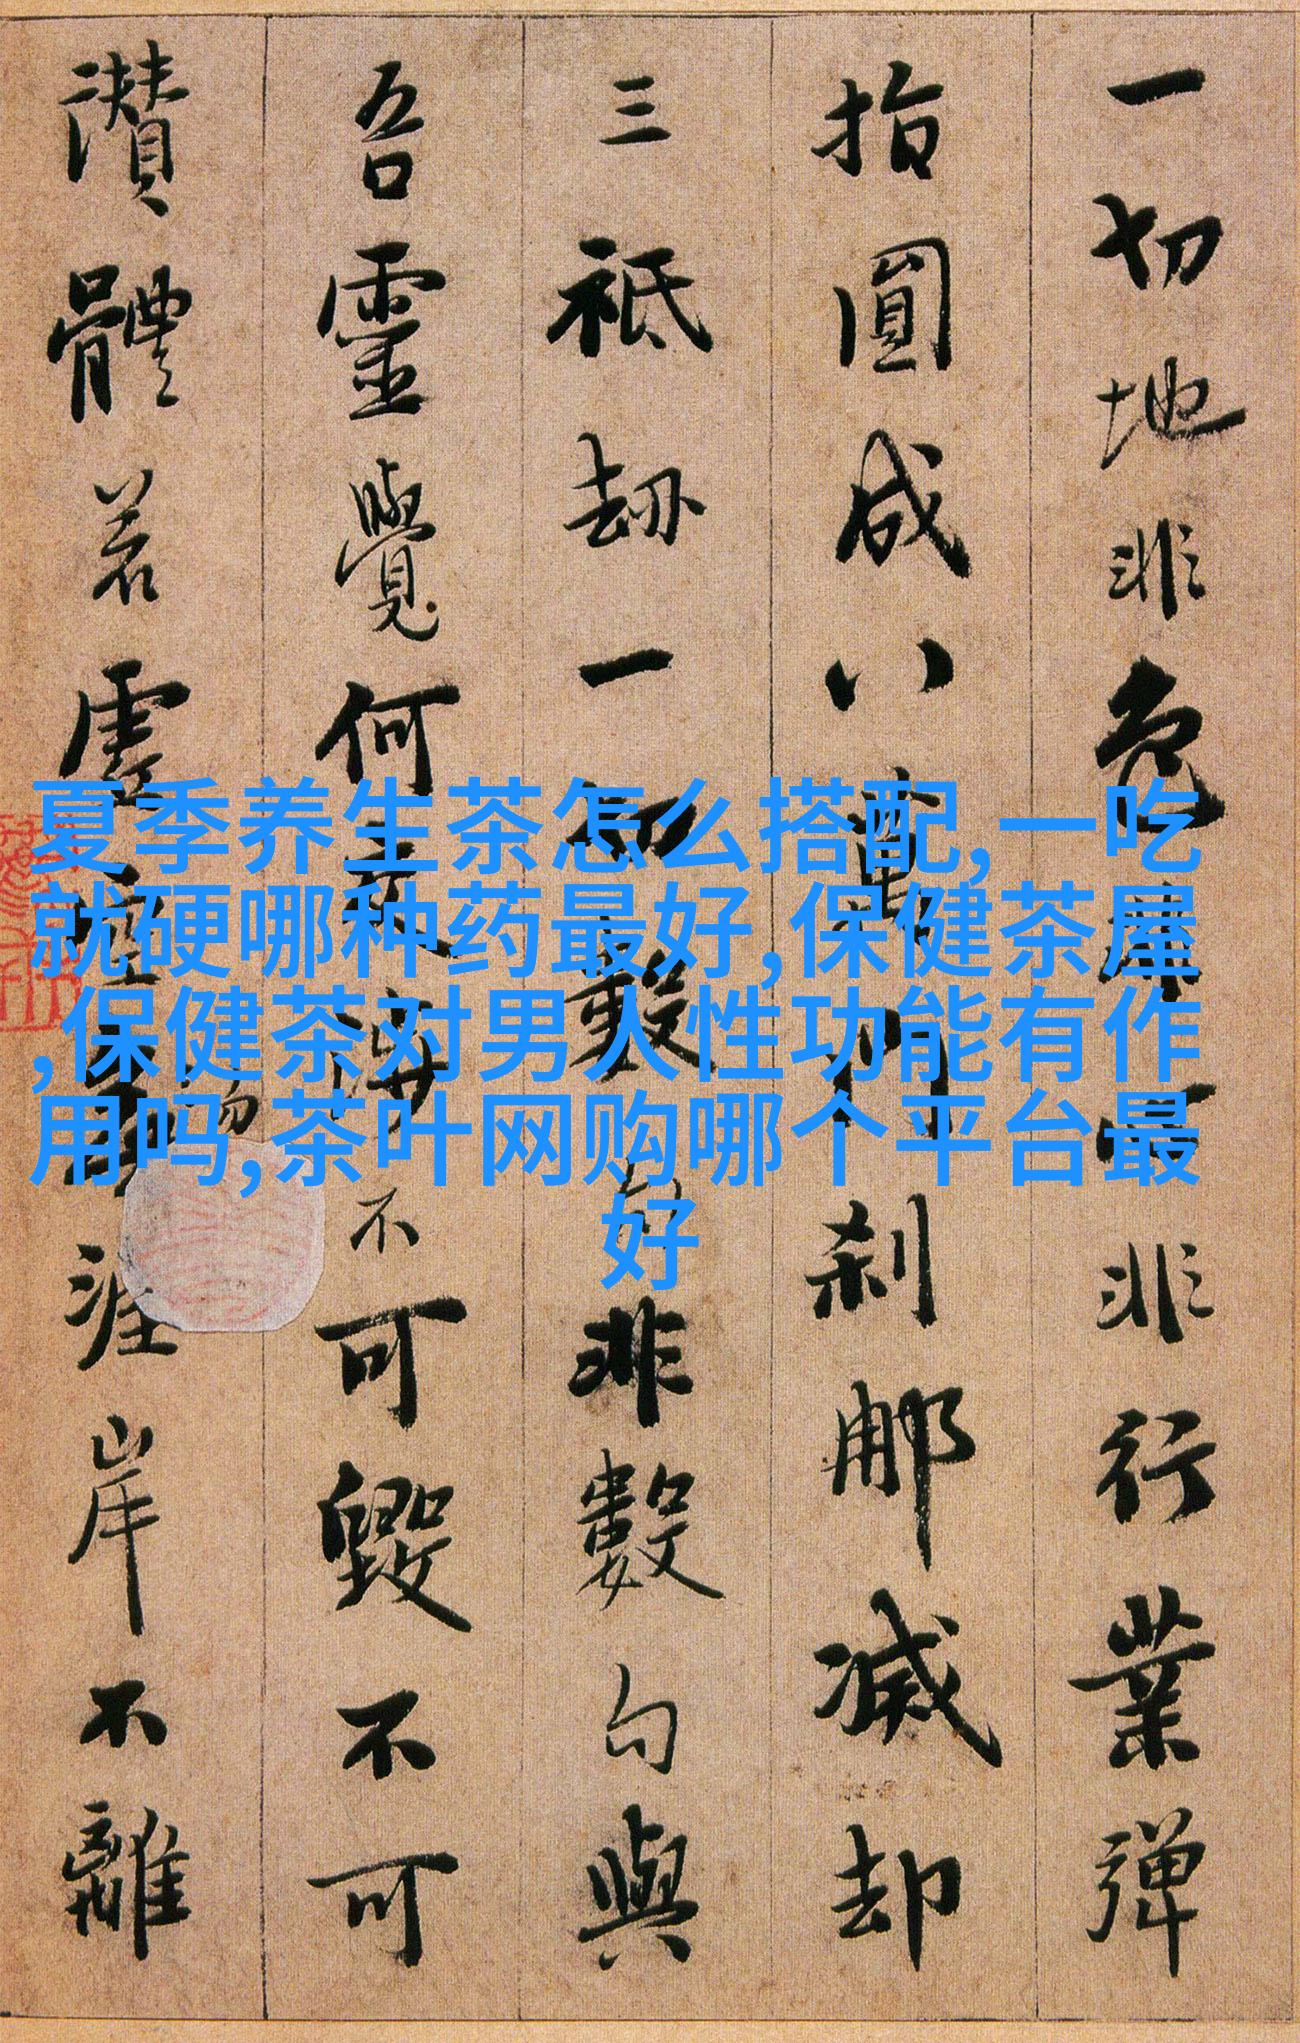 一切地非色非心非行業彈
指圓成八萬門刹那滅却
三祇劫一切數句非數句與
吾靈覺何交涉不可毀不可
讚體若虛空勿涯岸不離
夏季养生茶怎么搭配,一吃
就硬哪种药最好,保健茶屋
,保健茶对男人性功能有作
用吗,茶叶网购哪个平台最
好